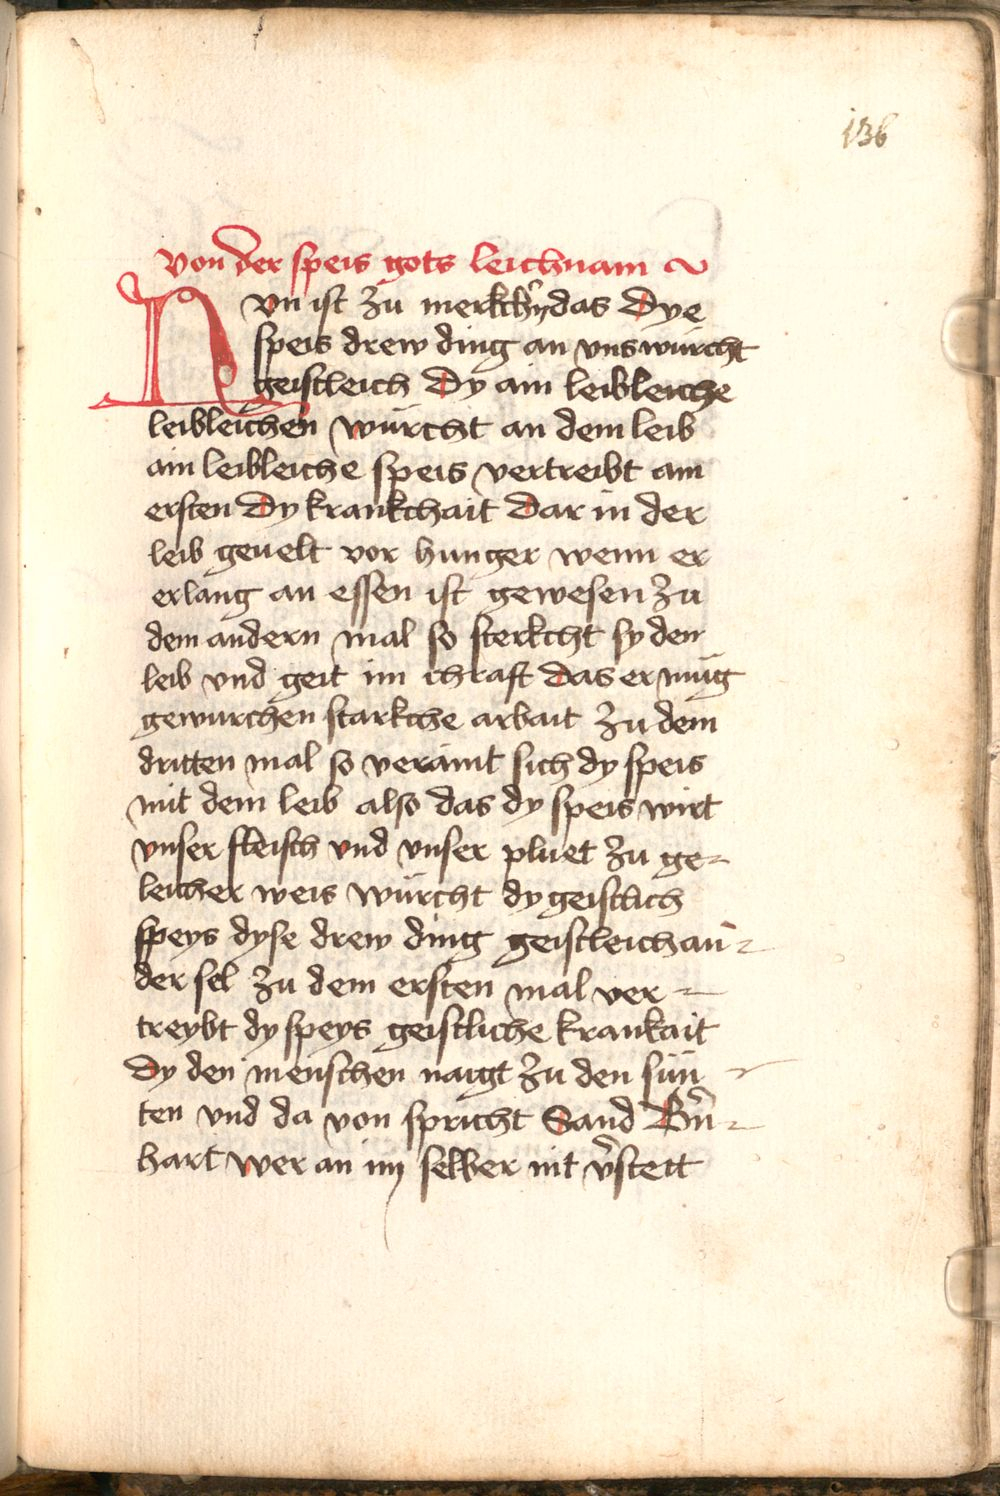 136
Von der speis gots leichnam
Nvn ist zu merkchñ das Dye
speis drew ding an vns würcht
geistleich Dy ain leibleiche
leibleichen würcht an dem leib
ain leibleiche speis vertreibt am
ersten Dy krankchait Dar in der
leib geuelt vor hunger wenn er
er lang an essen ist gewesen zu
dem andern mal so sterkcht sy den
leib vnd geit im chraft das er müg
gewurchen starkche arbait zu dem
dritten mal so veraint sich dy speis
mit dem leib also das dy speis wirt
vnser fleisch vnd vnser pluet zu ge-
leicher weis würcht dy geistlich
speys dyse drew ding geistleich an
der sel zu dem ersten mal ver-
treybt dy speys geistliche krankait
Dy den menschen naigt zu den sün
ten vnd da von spricht Sand Bern-
hart wer an im selber nit v̄stett